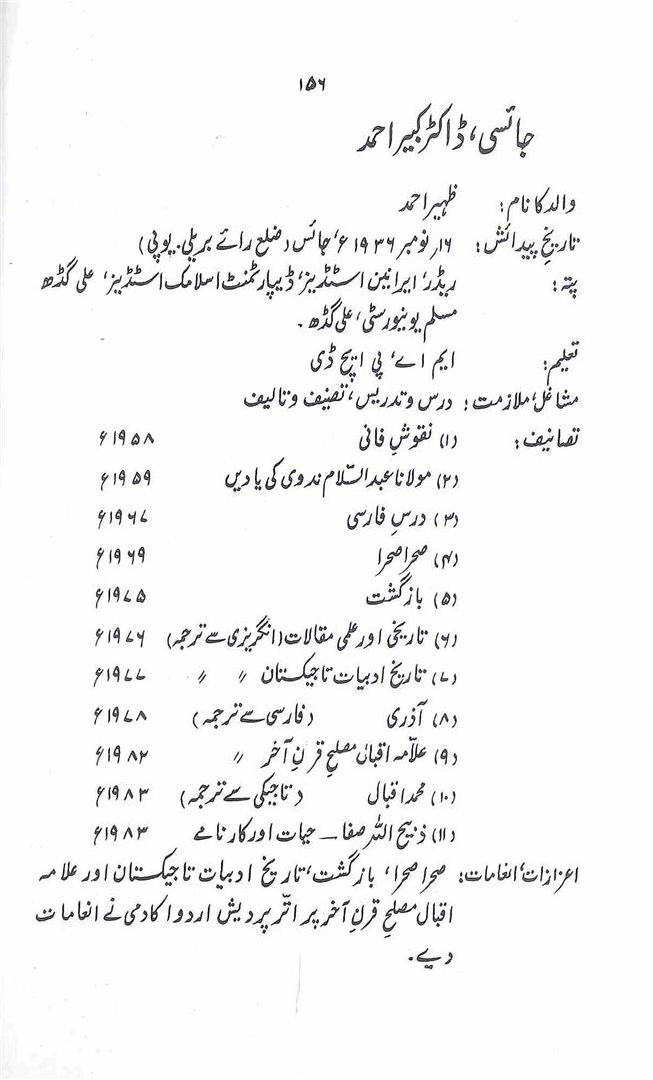 ۱۵۶
جائسی، ڈاکٹر کبیر احمد
والد کا نام: ظہیر احمد
تاریخ پیدائش: ۱۶؍ نومبر ۱۹۳۶ء، جائس (ضلع رائے بریلی۔ یوپی)
پتہ: ریڈر، ایرانین اسٹڈیز، ڈیپارٹمنٹ اسلامک اسٹڈیز، علی گڈھ
مسلم یونیورسٹی، علی گڈھ۔
تعلیم: ایم اے، پی ایچ ڈی
مشاغل، ملازمت: درس و تدریس، تصنیف و تالیف
تصانیف: (۱) نقوشِ فانی ۱۹۵۸ء
(۲) مولانا عبدالسّلام ندوی کی یادیں ۱۹۵۹ء
(۳) درسِ فارسی ۱۹۶۷ء
(۴) صحرا صحرا ۱۹۶۹ء
(۵) بازگشت ۱۹۷۵ء
(۶) تاریخی اور علمی مقالات (انگریزی سے ترجمہ) ۱۹۷۶ء
(۷) تاریخ ادبیات تاجیکستان // // ۱۹۷۷ء
(۸) آذری (فارسی سے ترجمہ) ۱۹۷۸ء
(۹) علّامہ اقبال مصلحِ قرنِ آخر // ۱۹۸۲ء
(۱۰) محمد اقبال (تاجیکی سے ترجمہ) ۱۹۸۳ء
(۱۱) ذبیح اللہ صفا ـ حیات اور کارنامے ۱۹۸۳ء
اعزازات، انعامات: صحرا صحرا، بازگشت، تاریخ ادبیات تاجیکستان اور علامہ
اقبال مصلحِ قرنِ آخر پر اتّر پردیش اردو اکادمی نے انعامات
دیے۔